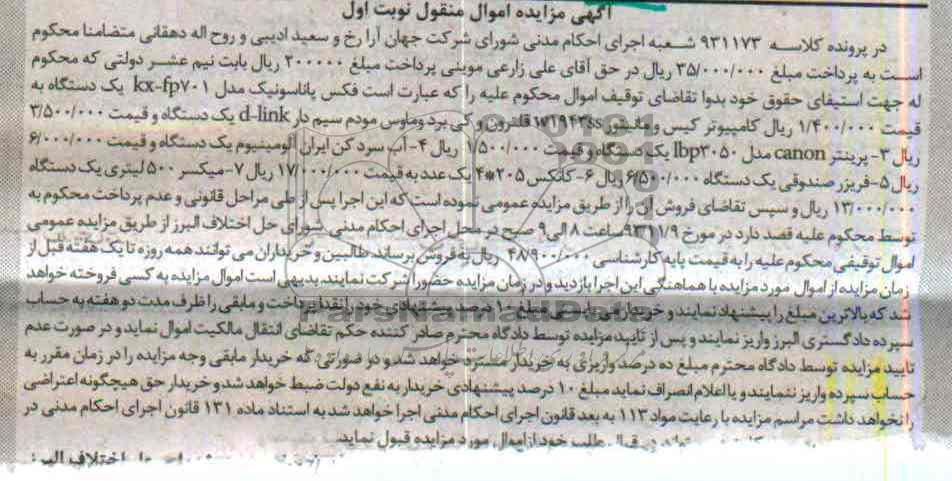 آگهی مزایده اموال منقول نوبت اول
در پرونده کلاسه ۹۳۱۱۷۳ شعبه اجرای احکام مدنی شورای شرکت جهان آرا رخ و سعید ادیبی و روح اله دهقانی متضامنا محکوم
است به پرداخت مبلغ ۳۵/۰۰۰/۰۰۰ ریال در حق آقای علی زارعی موینی پرداخت مبلغ ۲۰۰۰۰۰ ریال بابت نیم عشر دولتی که محکوم
له جهت استیفای حقوق خود بدوا تقاضای توقیف اموال محکوم علیه را که عبارت است فکس پاناسونیک مدل kx-fp۷۰۱ یک دستگاه به
قیمت ۱/۴۰۰/۰۰۰ ریال کامپیوتر کیس و مانیتور ۷۱۹۴۳ss قلترون و کی برد وماوس مودم سیم دار d-link یک دستگاه و قیمت ۳/۵۰۰/۰۰۰
ریال ۳- پرینتر canon مدل lbp۳۰۵۰ یک دستگاه و قیمت ۱/۵۰۰/۰۰۰ ریال ۴- آب سرد کن ایران آلومینیوم یک دستگاه و قیمت ۶/۰۰۰/۰۰۰
ریال ۵-فریزر صندوقی یک دستگاه ۶/۵۰۰/۰۰۰ ریال ۶- کانکس ۲۰۵*۴ یک عدد به قیمت ۱۷/۰۰۰/۰۰۰ ریال ۷-میکسر ۵۰۰ لیتری یک دستگاه
۱۳/۰۰۰/۰۰۰ ریال و سپس تقاضای فروش آن را از طریق مزایده عمومی نموده است که این اجرا پس از طی مراحل قانونی و عدم پرداخت محکوم به
توسط محکوم علیه قصد دارد در مورخ ۹۳/۱۱/۹ ساعت ۸ الی ۹ صبح در محل اجرای احکام مدنی شورای حل اختلاف البرز از طریق مزایده عمومی
اموال توقیفی محکوم علیه را به قیمت پایه کارشناسی ۴۸/۹۰۰/۰۰۰ ریال به فروش برساند. طالبین و خریداران می توانند همه روزه تا یک هفته قبل از
زمان مزایده از اموال مورد مزایده با هماهنگی این اجرا بازدید و در زمان مزایده حضورا شرکت نمایند. بدیهی است اموال مزایده به کسی فروخته خواهد
شد که بالاترین مبلغ را پیشنهاد نمایند و خریدار می بایست مبلغ ۱۰ درصد پیشنهادی خود را نقدا پرداخت و مابقی را ظرف مدت دو هفته به حساب
سپرده دادگستری البرز واریز نمایند و پس از تایید مزایده توسط دادگاه محترم صادر کننده حکم تقاضای انتقال مالکیت اموال نماید و در صورت عدم
تایید مزایده توسط دادگاه محترم مبلغ ده درصد واریزی به خریدار مسترد خواهد شد و در صورتی که خریدار مابقی وجه مزایده را در زمان مقرر به
حساب سپرده واریز ننمایند و یا اعلام انصراف نماید مبلغ ۱۰ درصد پیشنهادی خریدار به نفع دولت ضبط خواهد شد و خریدار حق هیچگونه اعتراضی
را نخواهد داشت مراسم مزایده با رعایت مواد ۱۱۳ به بعد قانون اجرای احکام مدنی اجرا خواهد شد به استناد ماده ۱۳۱ قانون اجرای احکام مدنی در
قبال طلب خود از اموال مورد مزایده قبول نماید.
ParsNamadData